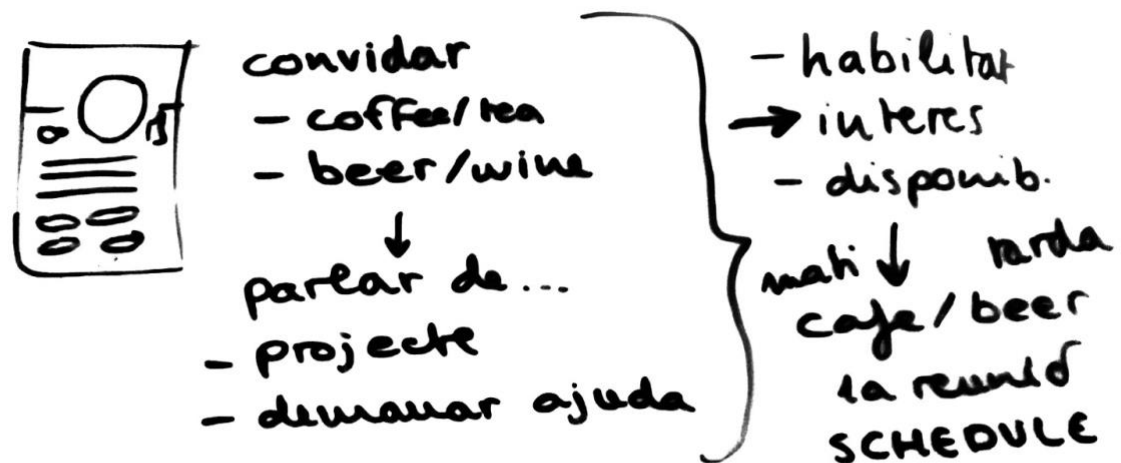 convidar
- coffee/tea
- beer/wine
↓
parlar de...
- projecte
- demanar ajuda
- habilitat
→ interes
- disponib.
mati ↓ tarda
cafe/beer
1a reunió
SCHEDULE